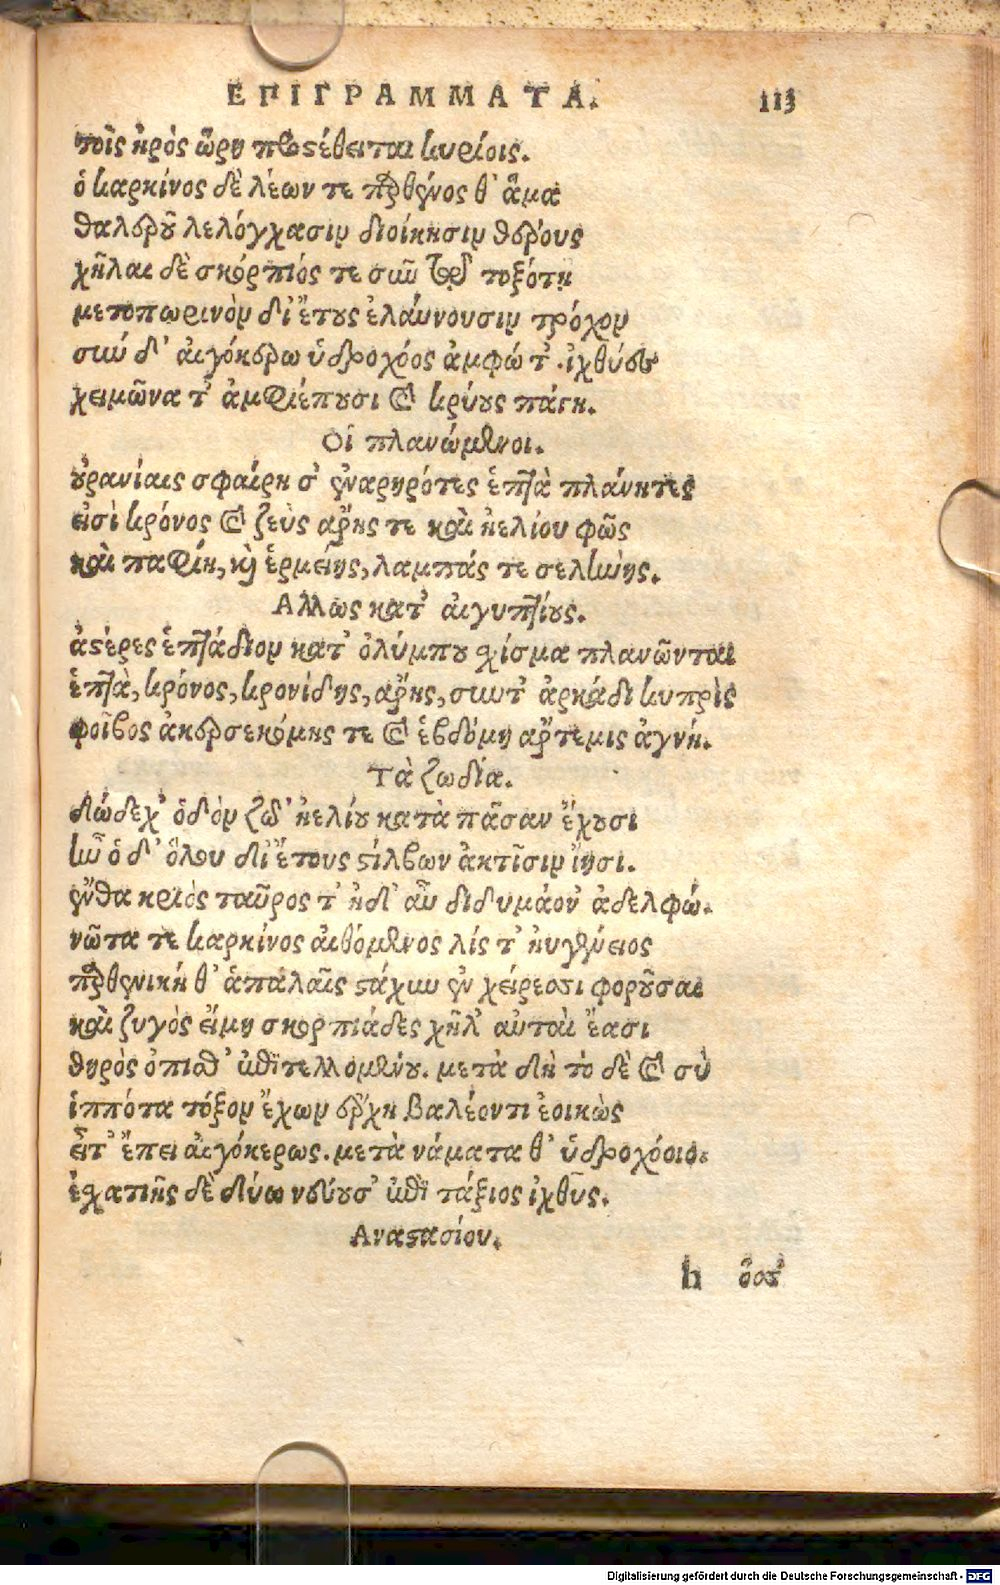 ΕΠΙΓΡΑΜΜΑΤΑ. 113
τοῖς ἠρὸς ὥρη προστέθειται κυρίοις.
ὁ καρκίνος δὲ λέων τε παρθένος θ' ἅμα
θαλεροῦ λελόγχασιν διοίκησιν θέρους
χῆλαι δὲ σκόρπιός τε σὺν τῷ τοξότῃ
μετοπωρινὸν δι' ἔτους ἐλαύνουσιν τρόχον
σὺν δ' αἰγόκερω ὑδροχόος ἀμφώ τ' ἰχθύε
χειμῶνα τ' ἀμφιέπουσι καὶ κρύους πάγη.
Οἱ πλανώμενοι.
οὐρανίαις σφαίρησ' ἐναρηρότες ἑπτὰ πλάνητες
εἰσὶ κρόνος καὶ ζεὺς ἄρης τε καὶ ἠελίου φῶς
καὶ παφίη, καὶ ἑρμείης, λαμπάς τε σελήνης.
Αλλως κατ' αἰγυπτίους.
ἀστέρες ἑπτάδιον κατ' ὀλύμπου χίσμα πλανῶνται
ἑπτὰ, κρόνος, κρονίδης, ἄρης, σὺν τ' ἀρκάδι κυπρὶς
φοῖβος ἀκερσεκόμης τε καὶ ἑβδόμη ἄρτεμις ἁγνή.
Τὰ ζωδία.
δώδεχ' ὁδὸν ζώδ' ἠελίου κατὰ πᾶσαν ἔχουσι
ἣν ὁ δ' ὅλου δι' ἔτους στίλβων ἀκτῖσιν ἵησι.
ἔνθα κριὸς ταῦρος τ' ἠδ' αὖ διδυμάον' ἀδελφώ.
νῶτα τε καρκίνος αἰθόμενος λίς τ' ἠυγένειος
παρθενική θ' ἁπαλαῖς στάχυν ἐν χείρεσσι φοροῦσαι
καὶ ζυγὸς εἴμη σκορπιάδες χῆλ' αὐταὶ ἔασι
θηρὸς ὀπισθ' ἐπιτελλομένου. μετὰ δὴ τὸ δὲ καὶ σὺ
ἱππότα τόξον ἔχων ἔρχη βαλέοντι ἐοικὼς
εἶτ' ἔπει αἰγόκερως. μετὰ νάματα θ' ὑδροχόοιο.
ἐχατιῆς δὲ δύω νεύουσ' ἐπὶ τάξιος ἰχθῦς.
Αναστασίου.
h ὅσσ'
Digitalisierung gefördert durch die Deutsche Forschungsgemeinschaft - DFG